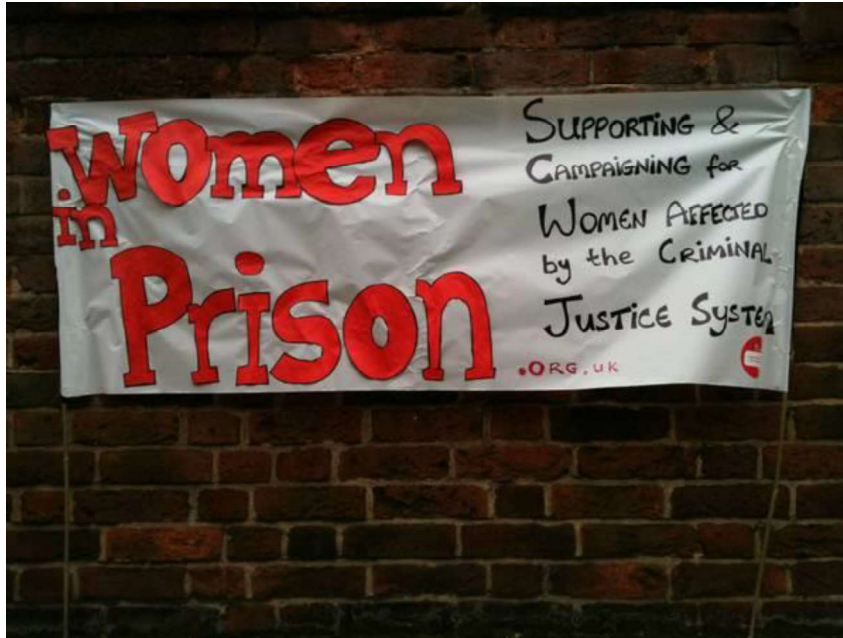 Women
in
Prison
Supporting &
Campaigning for
Women Affected
by the Criminal
Justice System
.ORG.UK